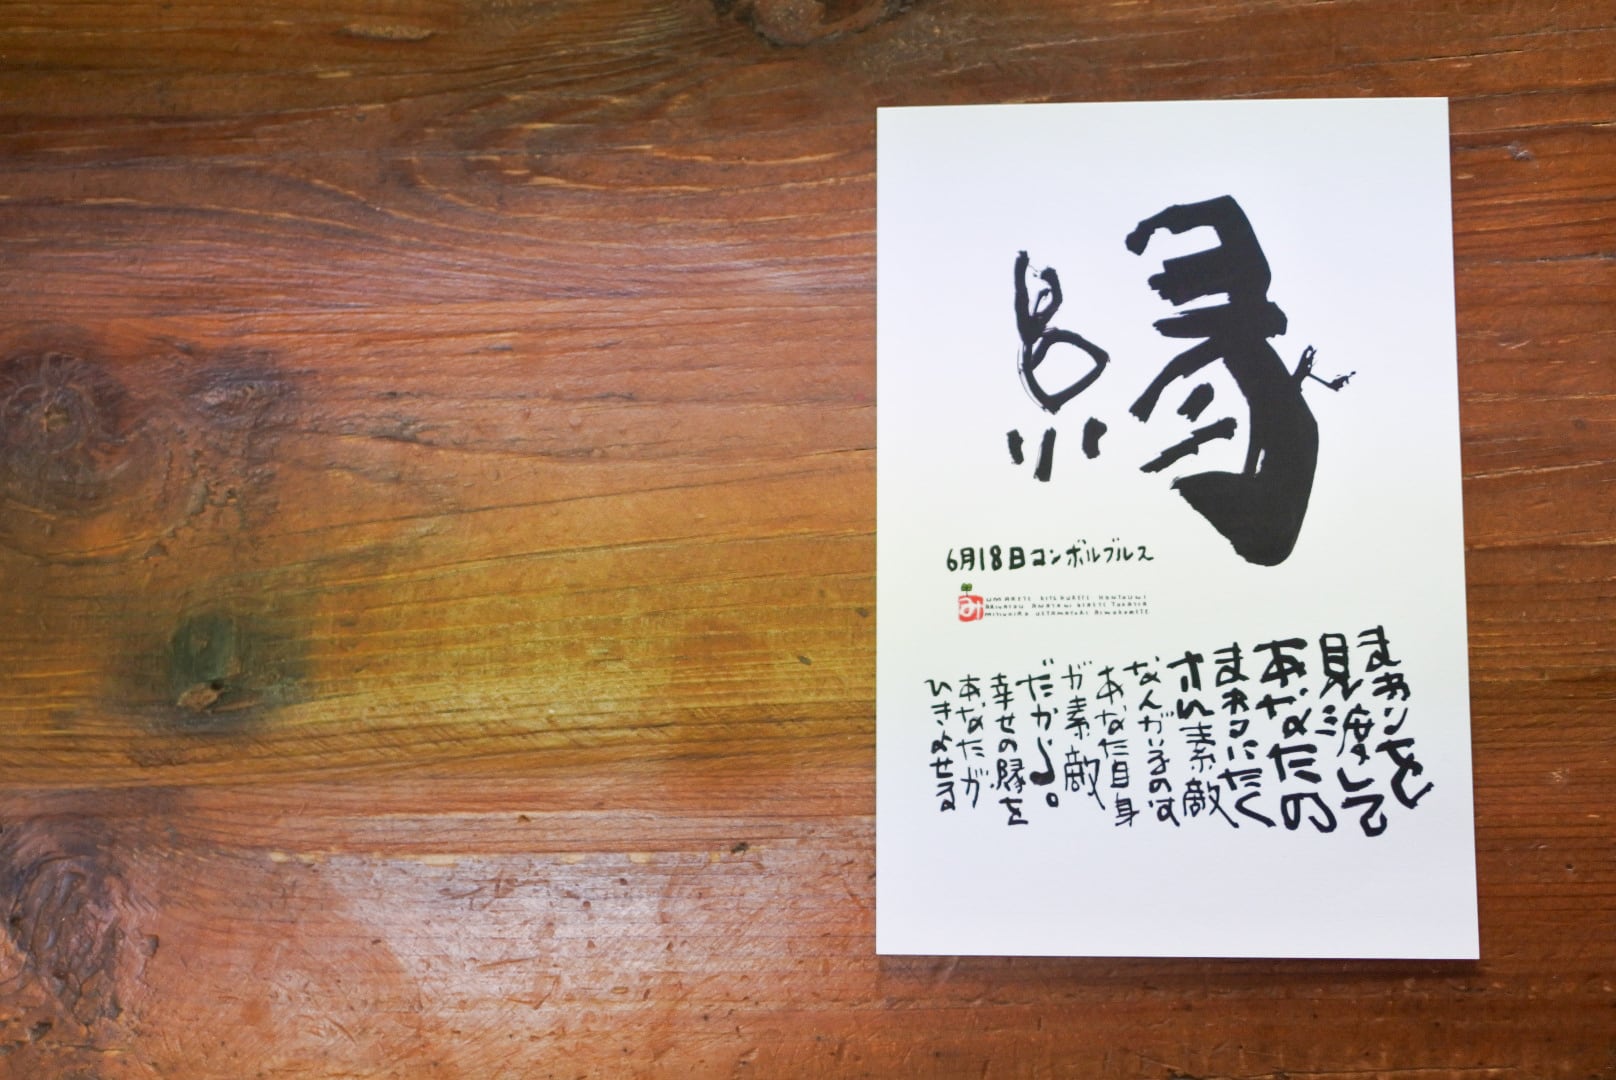 縁
6月18日コンボルブルス
み
UMARETE KITEKURETE HONTOUNI
ARIGATOU ANATANI
まわりを
見渡して
あなたの
まわりにたく
さん素敵
な人がいるのは
あなた自身
が素敵
だから。
幸せの縁を
あなたが
ひきよせる